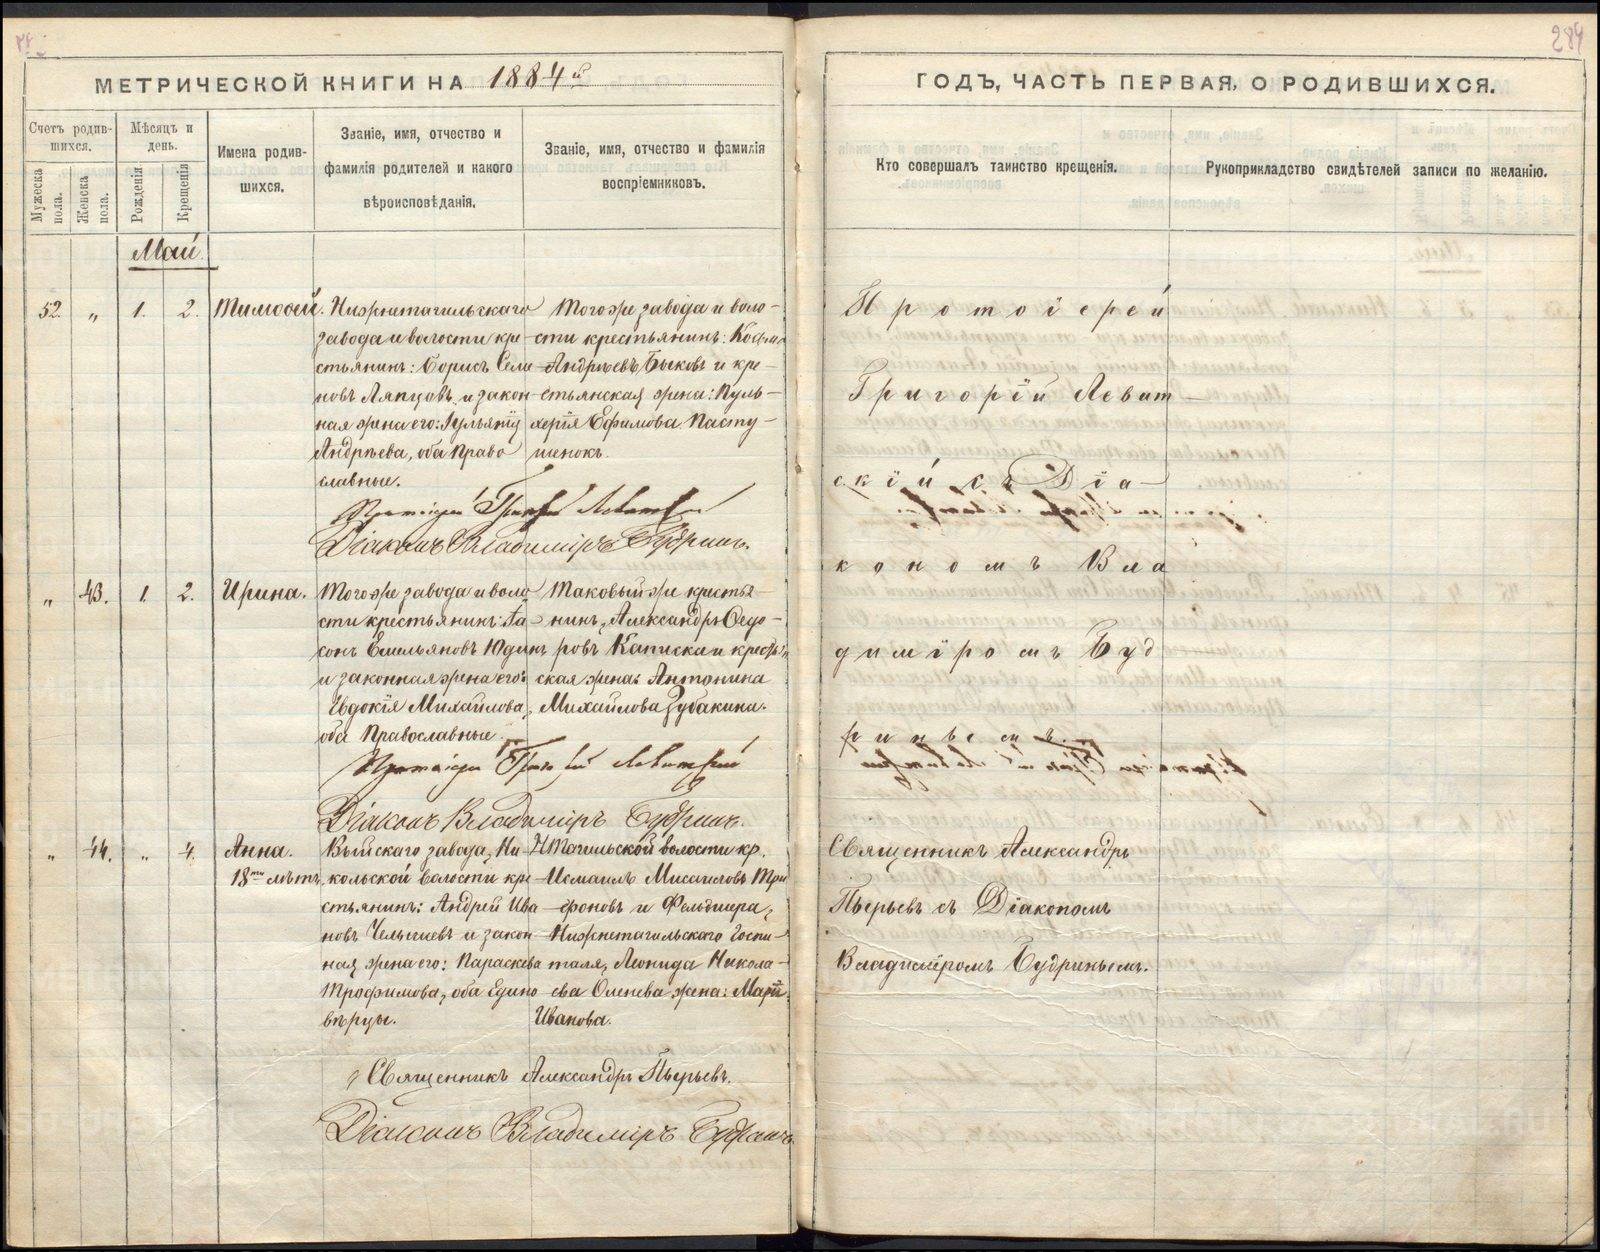 284
МЕТРИЧЕСКОЙ КНИГИ НА 1884й
ГОДЪ, ЧАСТЬ ПЕРВАЯ, О РОДИВШИХСЯ.
Счетъ родив-
шихся.
Мужеска
пола.
Женска
пола.
Мѣсяцъ и
день.
Рожденія
Крещенія
Имена родив-
шихся.
Званіе, имя, отчество и
фамилія родителей и какого
вѣроисповѣданія.
Званіе, имя, отчество и фамилія
воспріемниковъ.
Кто совершалъ таинство крещенія.
Рукоприкладство свидѣтелей записи по желанію.
Май
52. „ 1. 2. Тимофей.
Нижнетагильскаго
завода и волости кре-
стьянинъ: Борисъ Семе
новъ Ляпцовъ и закон
ная жена его:
Андрѣева, оба Право
славные.
Тогоже завода и воло-
сти крестьянинъ: Косма
Андрѣевъ Быковъ и кре-
стьянская жена: Пуль-
херія Ефимова Пасту-
шенокъ.
Протоіерей
Григорій Левит-
скій съ Діа-
кономъ Вла
диміромъ Буд
ринымъ.
Протоіерей Григорій Левитскій
Діаконъ Владиміръ Будринъ.
„ 43. 1. 2. Ирина.
Тогоже завода и воло
сти крестьянинъ: Са-
сонъ Емельяновъ Юдинъ
и законная жена его:
Евдокія Михайлова,
оба Православные.
Таковый же крестья-
нинъ, Александръ Ѳедо-
ровъ и крестьян
ская жена: Антонина
Михайлова Зубакина.
Протоіерей Григорій Левитскій
Діаконъ Владиміръ Будринъ.
„ 44. „ 4. Анна.
18ти лѣтъ
Выйскаго завода, Ни
кольской волости кре
стьянинъ: Андрей Ива
новъ и закон
ная жена его: Параскева
Трофимова, оба Едино
вѣрцы.
НТагильской волости кр.
Исмаилъ Мисаиловъ Три
фоновъ и Фельдшера,
Нижнетагильскаго Госпи-
таля, Леонида Никола-
ева Оленева жена: Марія
Иванова.
Священникъ Александръ
Пьерьевъ съ Діакономъ
Владиміромъ Будринымъ.
Священникъ Александръ Пьерьевъ.
Діаконъ Владиміръ Будринъ